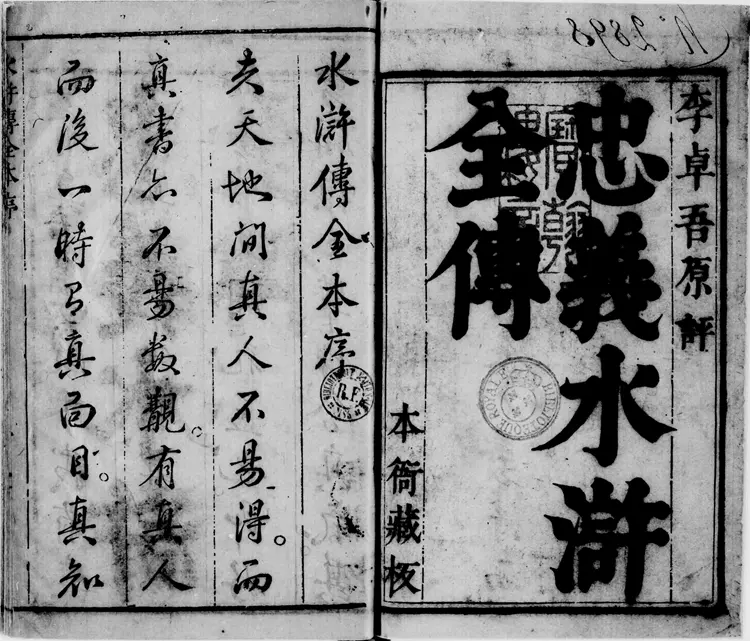 李卓吾原評
忠義水滸
全傳
本衙藏板
BIBLIOTHEQUE ROYALE
水滸傳全本序
R.F.
夫天地間真人不易得。而
真書亦不易數覯。有真人
而後一時有真面目。真知
水滸傳全本序